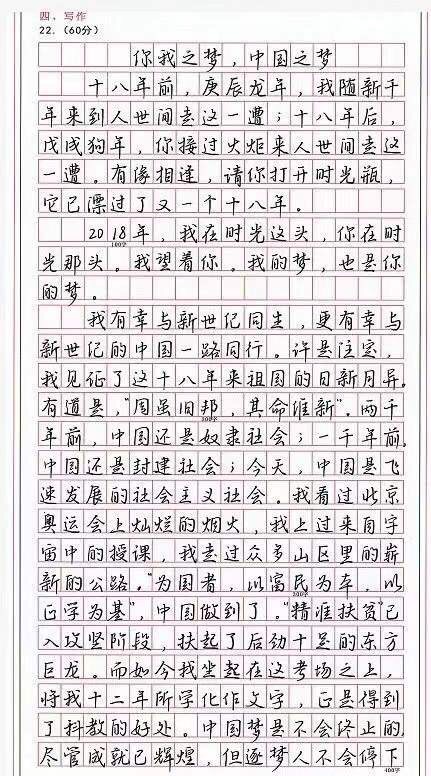 四、写作
22.（60分）
你我之梦，中国之梦
十八年前，庚辰龙年，我随新千
年来到人世间走这一遭；十八年后，
戊戌狗年，你接过火炬来人世间走这
一遭。有缘相逢，请你打开时光瓶，
它已漂过了又一个十八年。
2018年，我在时光这头，你在时
100字
光那头。我望着你。我的梦，也是你
的梦。
我有幸与新世纪同生，更有幸与
新世纪的中国一路同行。许是注定，
我见证了这十八年来祖国的日新月异。
有道是，“周虽旧邦，其命维新”。两千
200字
年前，中国还是奴隶社会；一千年前，
中国还是封建社会；今天，中国是飞
速发展的社会主义社会。我看过北京
奥运会上灿烂的烟火，我上过来自宇
宙中的授课，我走过众多山区里的崭
新的公路。“为国者，以富民为本，以
300字
正学为基”，中国做到了。“精准扶贫”已
入攻坚阶段，扶起了后劲十足的东方
巨龙。而如今我坐在这考场之上，
将我十二年所学化作文字，正是得到
了科教的好处。中国梦是不会终止的，
尽管成就已辉煌，但逐梦人不会停下
400字